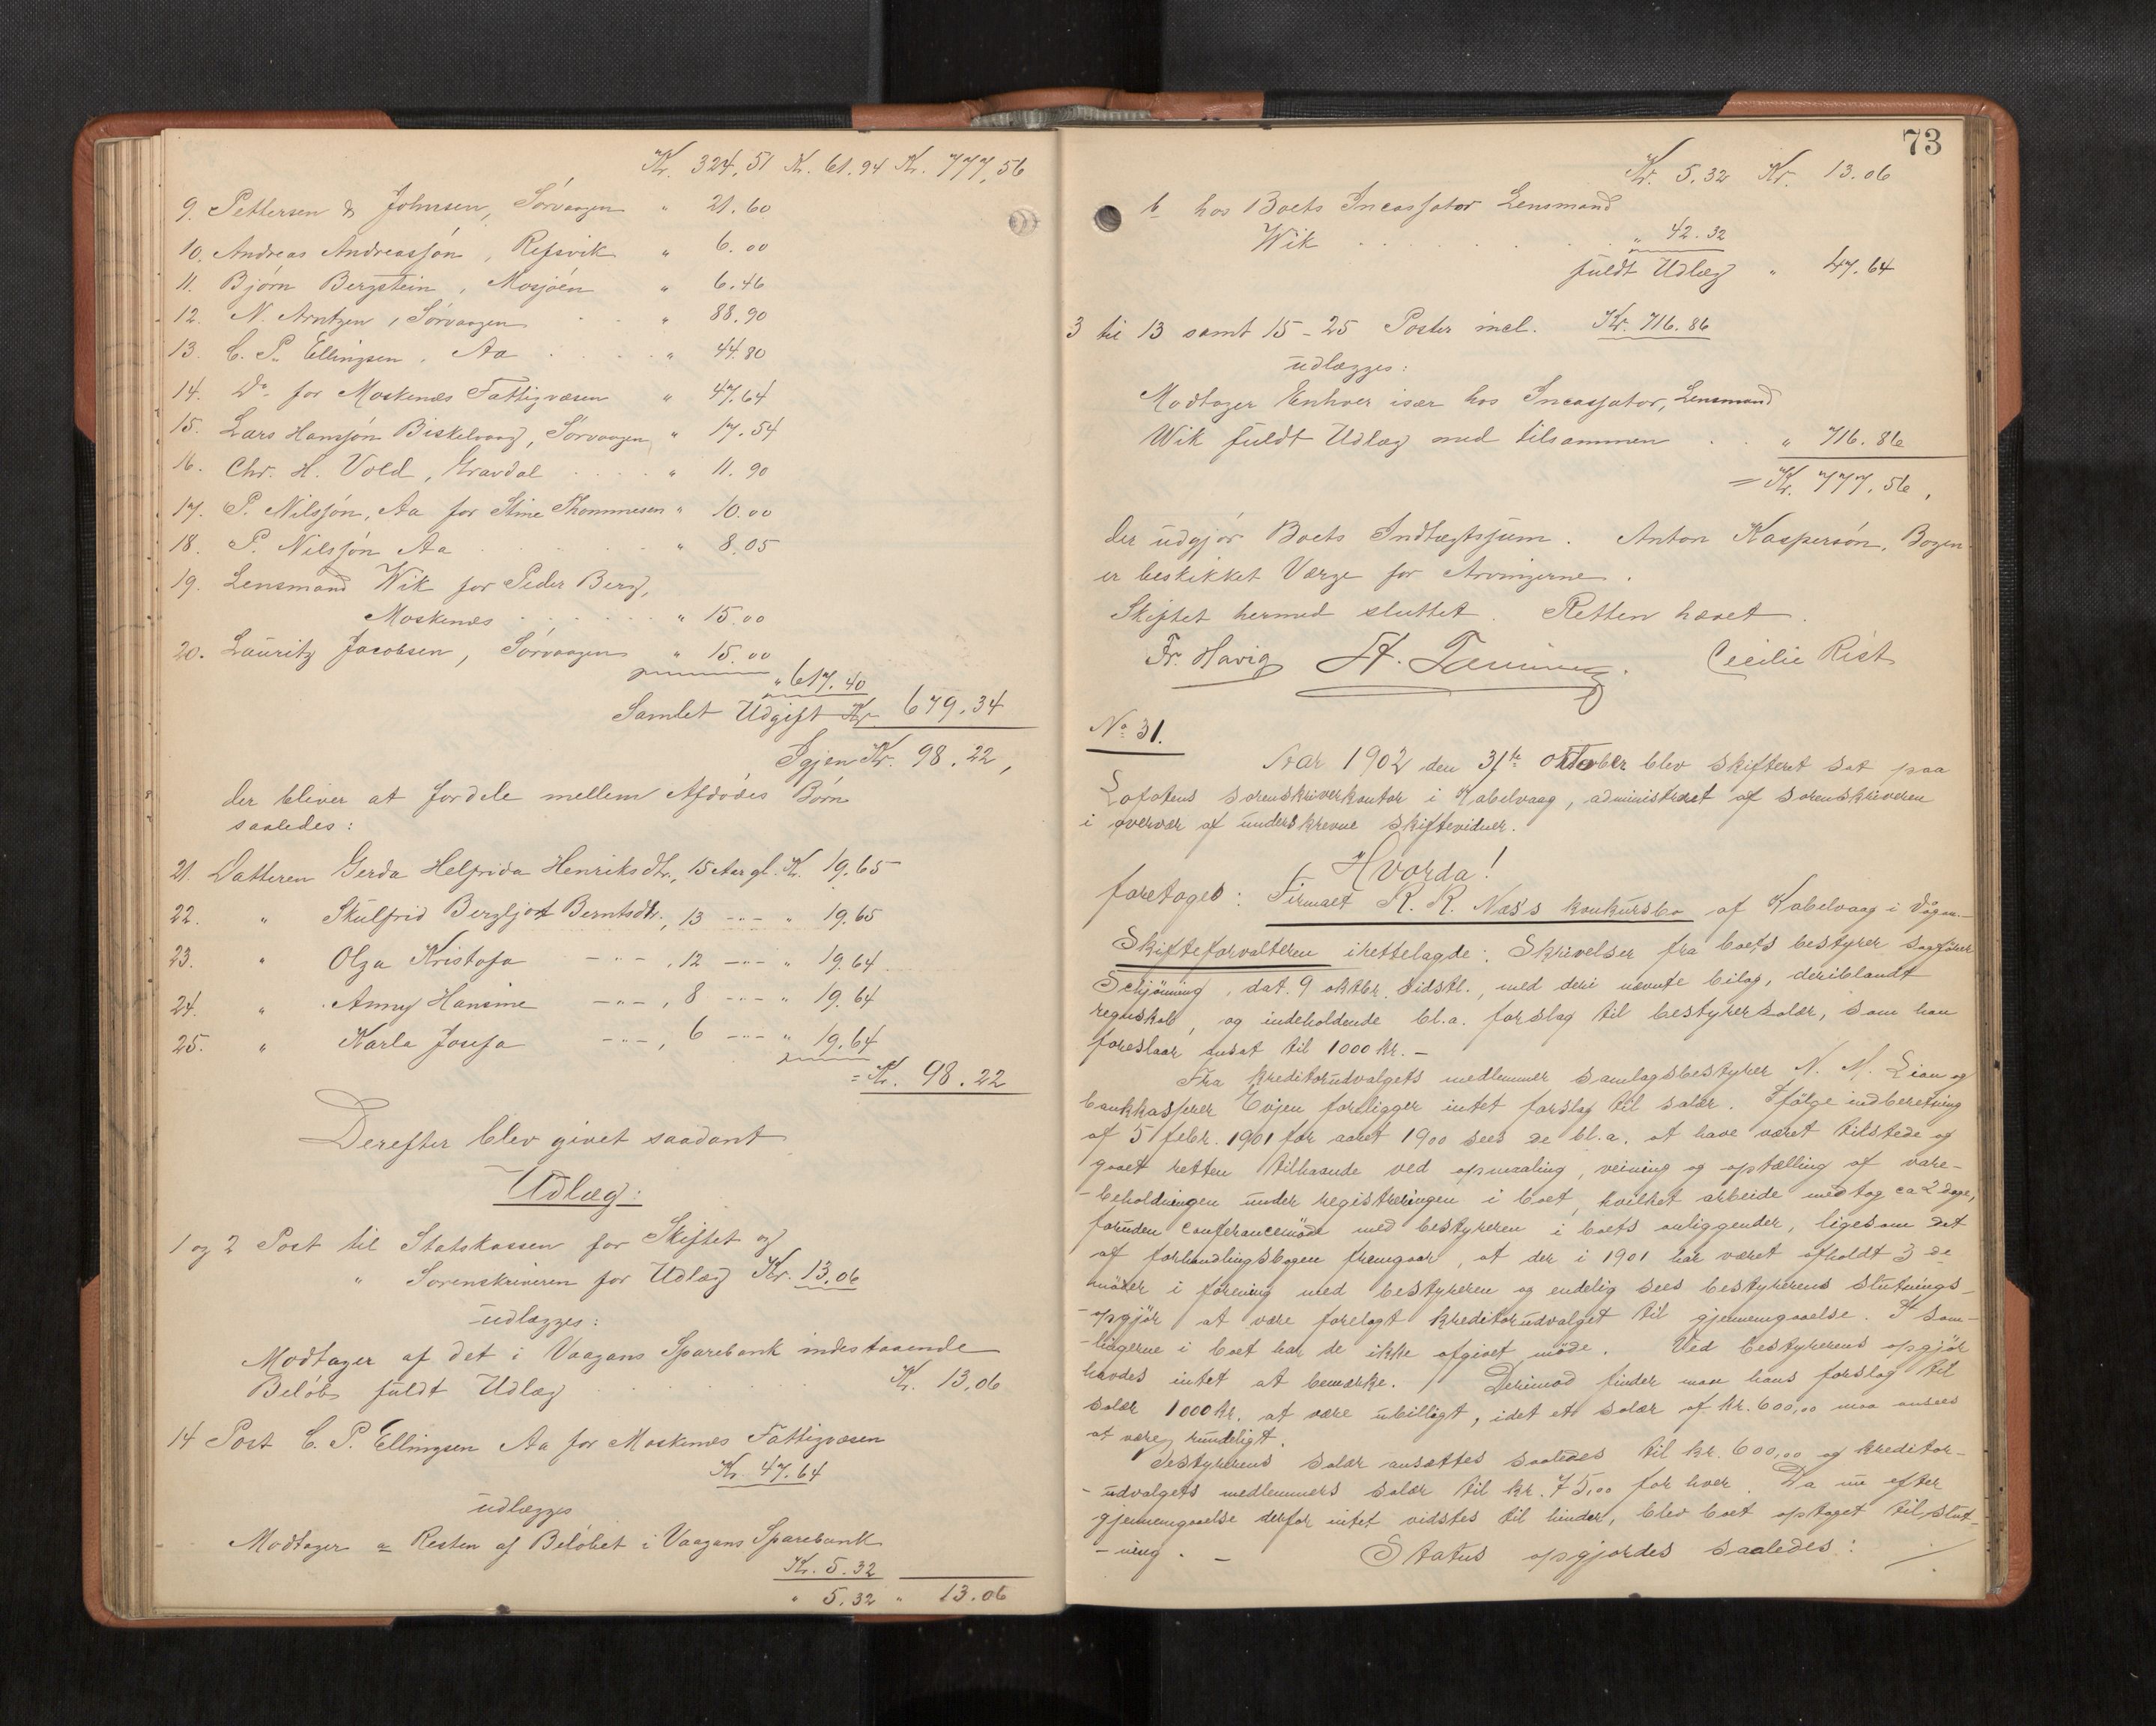 Kr. 324,51 Kr. 61.94 Kr. 777,56
9. Pettersen & Johnsen, Sörvaagen " 21.60
10. Andreas Andreassön, Refsvik " 6.00
11. Bjørn Bergstein, Mosjøen " 6.46
12. N. Arntzen, Sörvaagen " 88.90
13. C. P. Ellingsen, Aa " 44.80
14. Do for Moskenæs Fattigvæsen " 47.64
15. Lars Hanssön Biskelvaag, Sörvaagen " 17.54
16. Chr. H. Vold, Gravdal " 11.90
17. P. Nilssön, Aa for Stine Thommesen " 10.00
18. P. Nilssön Aa " 8.05
19. Lensmand Wik for Peder Berg,
Moskenæs " 15.00
20. Lauritz Jacobsen, Sörvaagen " 15.00
" 617.40
Samlet Udgift Kr 679.34
Igjen Kr. 98.22,
der bliver at fordele mellem Afdødes Børn
saaledes:
21. Datteren Gerda Helfrida Henriksdtr., 15 Aar gl. Kr. 19.65
22. " Skulfrid Bergljot Berntsdtr., 13 -"- " 19.65
23. " Olga Kristofa -"-, 12 -"- " 19.64
24. " Anny Hansine -"-, 8 -"- " 19.64
25. " Karla Josefa -"-, 6 -"- " 19.64
= Kr. 98.22
Derefter blev givet saadant
Udlæg:
1 og 2 Post til Statskassen for Skiftet og
" Sorenskriveren for Udlæg Kr. 13.06
udlægges:
Modtager af det i Vaagans Sparebank indestaaende
Beløb fuldt Udlæg Kr. 13.06
14 Post C. P. Ellingsen Aa for Moskenæs Fattigvæsen
Kr. 47.64
udlægges
Modtager a Resten af Beløbet i Vaagans Sparebank
Kr. 5.32
" 5.32 " 13.06
73
Kr. 5.32 Kr. 13.06
b hos Boets Incassator Lensmand
Wik " 42.32
fuldt Udlæg " 47.64
3 til 13 samt 15-25 Poster incl. Kr. 716.86
udlægges:
Modtager Enhver især hos Incassator, Lensmand
Wik fuldt Udlæg med tilsammen " 716.86
= Kr. 777,56,
der udgjør Boets Indtægtssum. Anton Kaspersøn, Bogen
er beskikket Værge for Arvingerne.
Skiftet hermed sluttet. Retten hævet.
Fr. Havig Cecilie Rist
No 31.
Aar 1902 den 31te oktober blev skifteret sat paa
Lofotens sorenskriverkontor i Kabelvaag, administreret af sorenskriveren
i overvær af underskrevne skiftevidner.
Hvorda!
foretoges: Firmaet R. R. Næss konkursbo af Kabelvaag i Vågan.-
Skifteforvalteren irettelagde: Skrivelser fra boets bestyrer sagfører
Schjøning, dat. 9 oktbr. sidstl., med deri nævnte bilag, deriblandt
regnskab, og indeholdende bl.a. forslag til bestyrersalær, som han
foreslaar ansat til 1000 kr. -
Fra kreditorudvalgets medlemmer samlagsbestyrer N. M. Lian og
bankkasserer Evjen foreligger intet forslag til salær. Ifølge indberetning
af 5 febr. 1901 for aaret 1900 sees de bl.a. at have været tilstede og
gaaet retten tilhaande ved opmaaling, veining og optælling af vare-
-beholdningen under registreringen i boet, hvilket arbeide medtog ca 2 dage,
foruden conferancemøde med bestyreren i boets anliggender, ligesom det
af forhandlingsbogen fremgaar, at der i 1901 har været afholdt 3 de
møder i forening med bestyreren og endelig sees bestyrerens slutnings-
-opgjör at være forelagt kreditorudvalget til gjennemgaaelse. I sam-
-lingerne i boet har de ikke afgivet møde. Ved bestyrerens opgjør
havdes intet at bemærke. Derimod finder man hans forslag til
salær 1000 kr. at være ubilligt, idet et salær af kr. 600,00 maa ansees
at være rundeligt.
Bestyrerens salær ansættes saaledes til kr. 600,00 og kreditor-
-udvalgets medlemmers salær til kr. 75,00 for hver. Da nu efter
gjennemgaaelse derfor intet vidstes til hinder, blev boet optaget til slut-
-ning. - Status opgjordes saaledes: